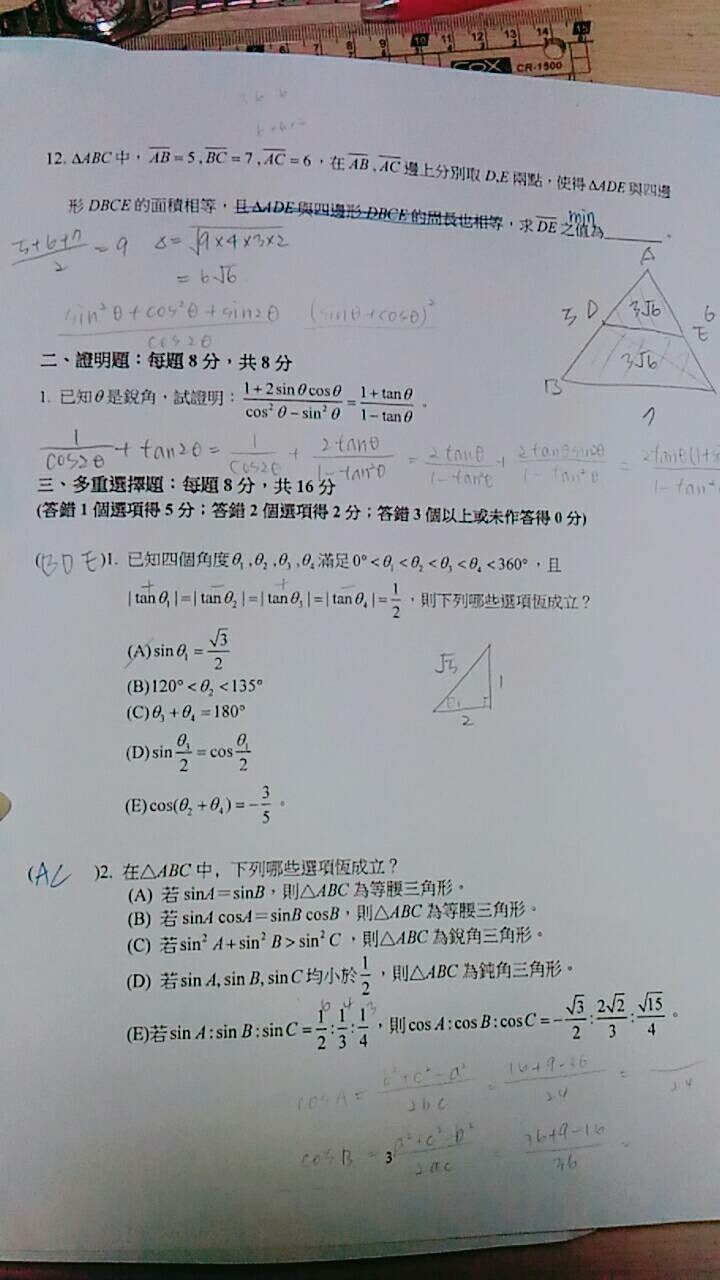 7 8 9 10 11 12 13 14 15
COX CR-1500
12. ΔABC 中，AB = 5，BC = 7，AC = 6，在 AB，AC 邊上分別取 D,E 兩點，使得 ΔADE 與四邊
形 DBCE 的面積相等，且 ΔADE 與四邊形 DBCE 的周長也相等，求 DE 之值為______。
min
5+6+7/2 = 9 Δ = √9×4×3×2
= 6√6
A
5 D 3√6 6
E
3√6
B
7
sin²θ + cos²θ + sin2θ / cos2θ (sinθ + cosθ)²
二、證明題：每題 8 分，共 8 分
1. 已知 θ 是銳角，試證明：(1+2sinθcosθ)/(cos²θ−sin²θ) = (1+tanθ)/(1−tanθ)。
1/cos2θ + tan2θ = 1/cos2θ + 2tanθ/(1−tan²θ) = 2tanθ/(1−tan²θ) + 2tanθsin2θ/(1−tan²θ) =
三、多重選擇題：每題 8 分，共 16 分
(答錯 1 個選項得 5 分；答錯 2 個選項得 2 分；答錯 3 個以上或未作答得 0 分)
(BDE)1. 已知四個角度 θ₁,θ₂,θ₃,θ₄ 滿足 0° < θ₁ < θ₂ < θ₃ < θ₄ < 360°，且
+ − + −
|tanθ₁| = |tanθ₂| = |tanθ₃| = |tanθ₄| = 1/2，則下列哪些選項恆成立？
(A) sinθ₁ = √3/2
(B) 120° < θ₂ < 135°
(C) θ₃ + θ₄ = 180°
(D) sin θ₃/2 = cos θ₁/2
(E) cos(θ₂ + θ₄) = −3/5。
√5 1
θ₁
2
(AC )2. 在△ABC 中, 下列哪些選項恆成立？
(A) 若 sinA＝sinB，則△ABC 為等腰三角形。
(B) 若 sinA cosA＝sinB cosB，則△ABC 為等腰三角形。
(C) 若 sin² A + sin² B > sin² C，則△ABC 為銳角三角形。
(D) 若 sin A, sin B, sin C 均小於 1/2，則△ABC 為鈍角三角形。
6 4 3
(E)若 sin A : sin B : sin C = 1/2 : 1/3 : 1/4，則 cos A : cos B : cos C = −√3/2 : 2√2/3 : √15/4。
cosA = b²+c²−a²/2bc = 16+9−36/24 = /24
cosB = a²+c²−b²/2ac = 36+9−16/36 =
3